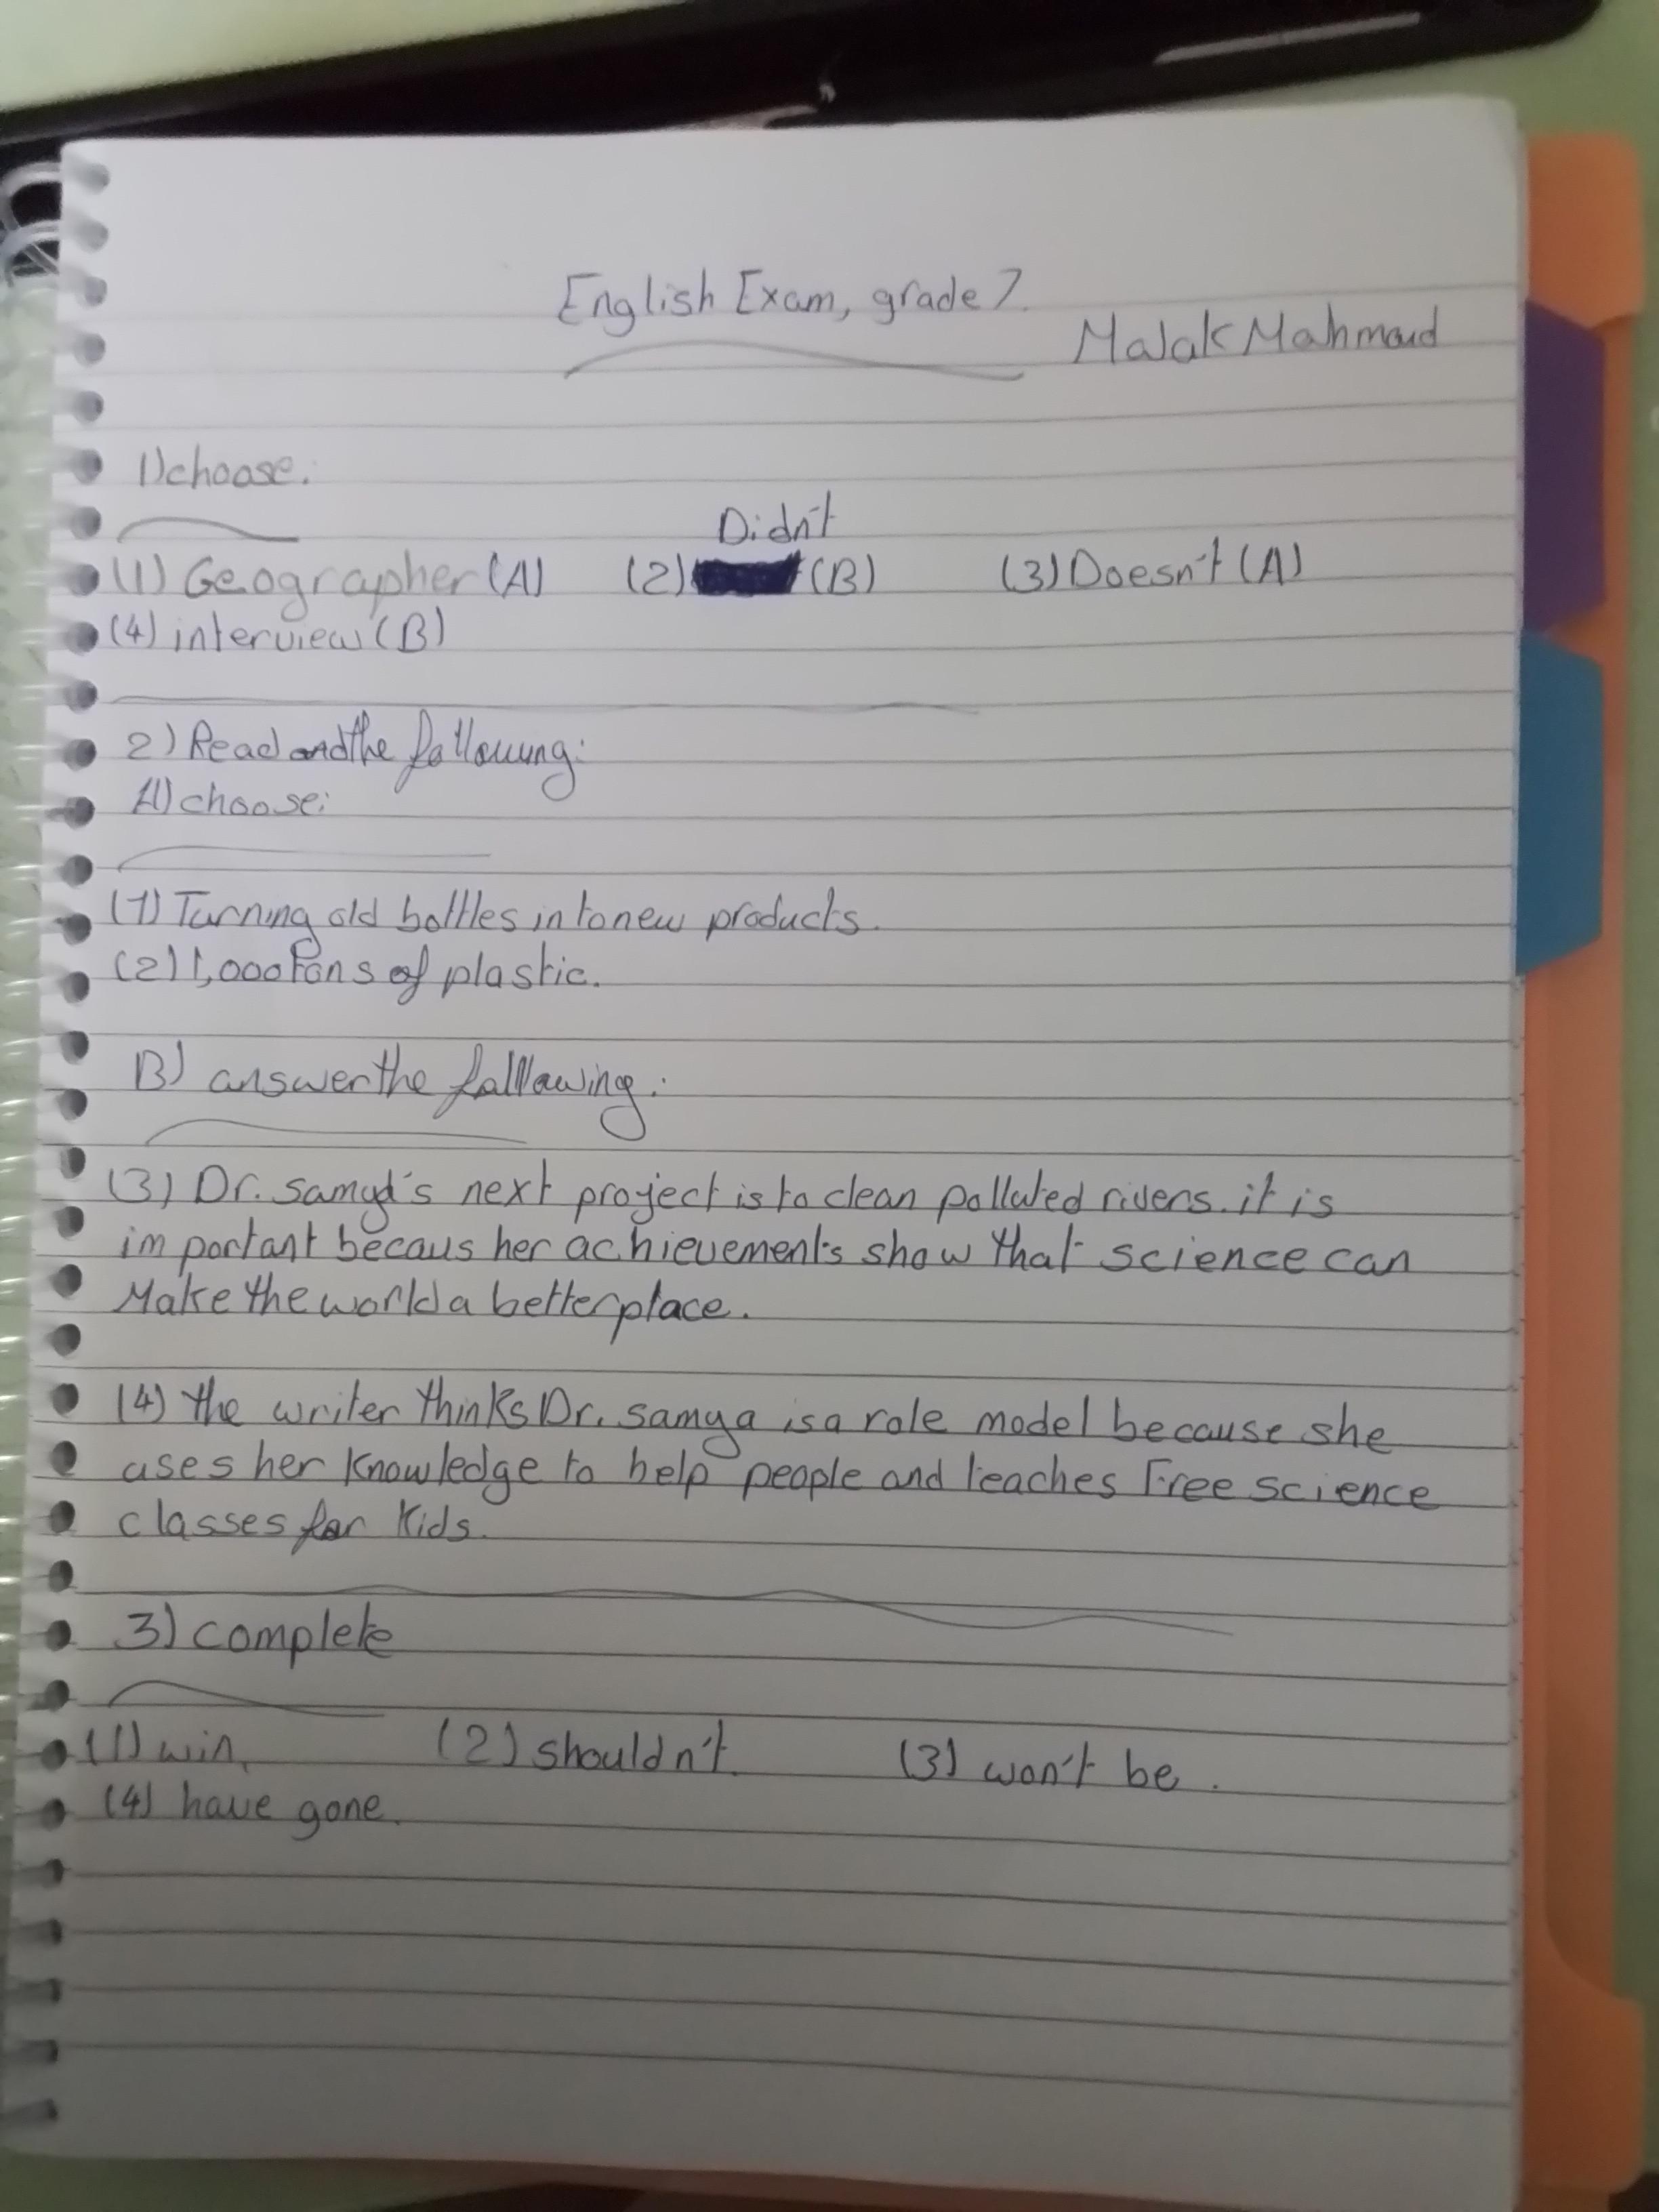 English Exam, grade 7.
Malak Mahmoud
1) choose:
Didn't
(1) Geographer (A) (2) (B) (3) Doesn't (A)
(4) interview (B)
2) Read and the following:
A) choose:
(1) Turning old bottles into new products.
(2) 1,000 tons of plastic.
B) answer the following:
(3) Dr. samya's next project is to clean polluted rivers. it is
important becaus her achievements show that science can
Make the world a better place.
(4) the writer thinks Dr. samya is a role model because she
uses her knowledge to help people and teaches Free science
classes for kids.
3) complete
(1) win. (2) shouldn't. (3) won't be.
(4) have gone.